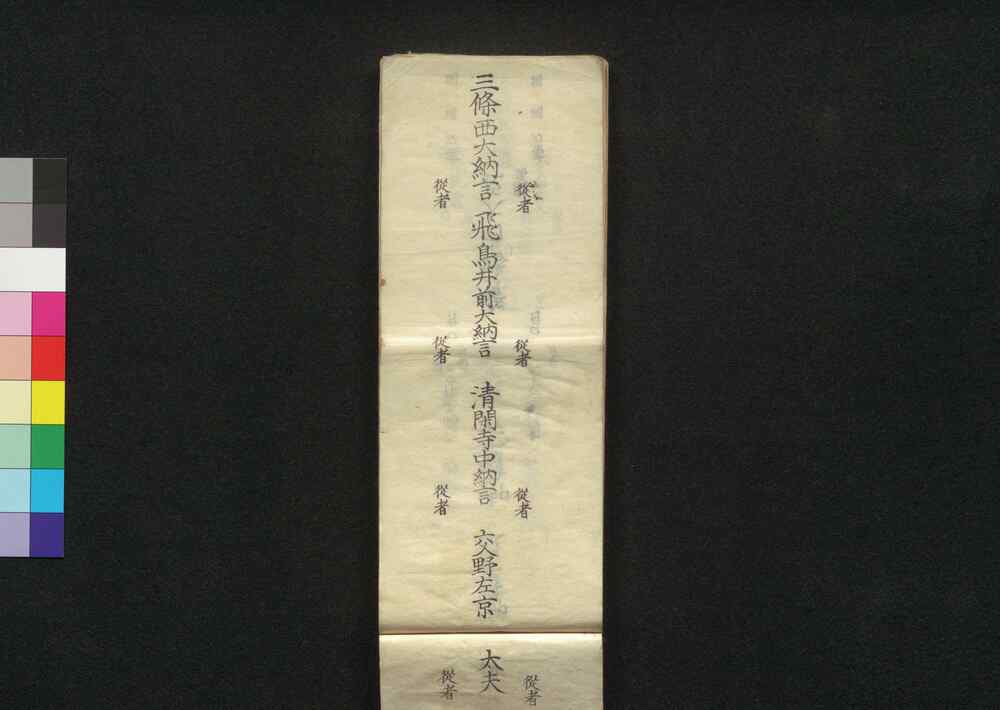 從者
從者
從者
從者
三條西大納言 飛鳥井前大納言 清閑寺中納言 交野左京
太夫
從者
從者
從者
從者